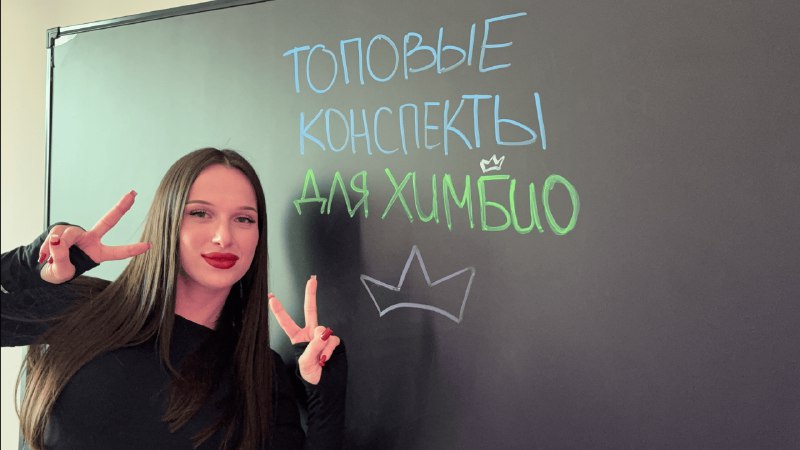 ТОПОВЫЕ
КОНСПЕКТЫ
ДЛЯ ХИМБИО